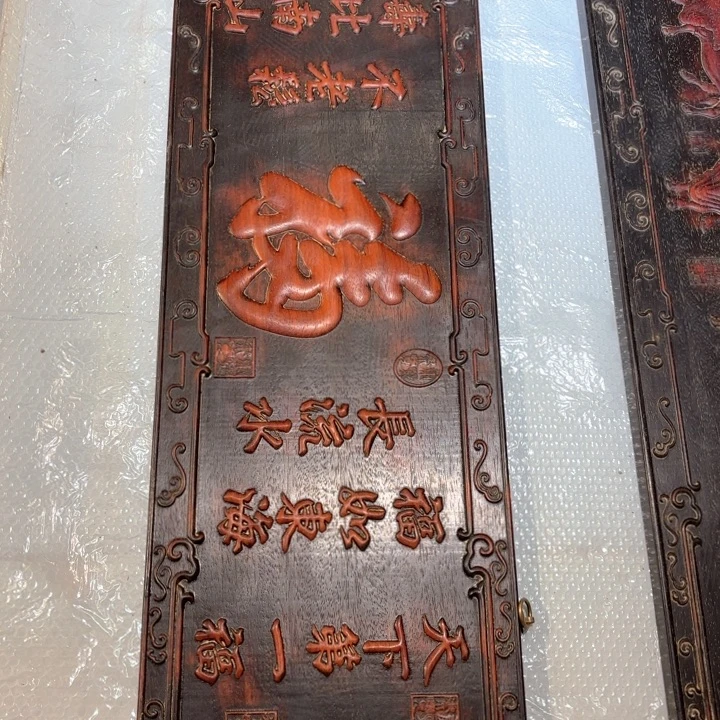 天下第一福
福如東海
長流水
福
不老鬆
壽比南山